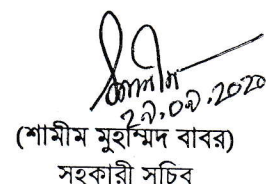 ২৯.০৯.২০২০
(শামীম মুহাম্মিদ বাবর)
সহকারী সচিব